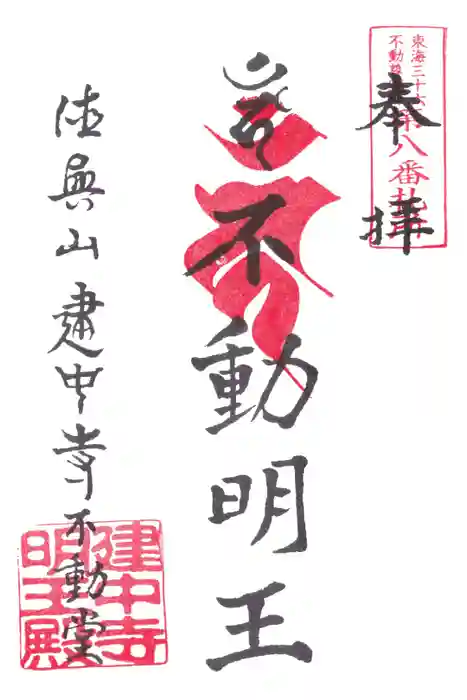 奉拝
東海三十六
不動尊
第八番札所
不動明王
徳興山建中寺不動堂
建中寺
明王殿